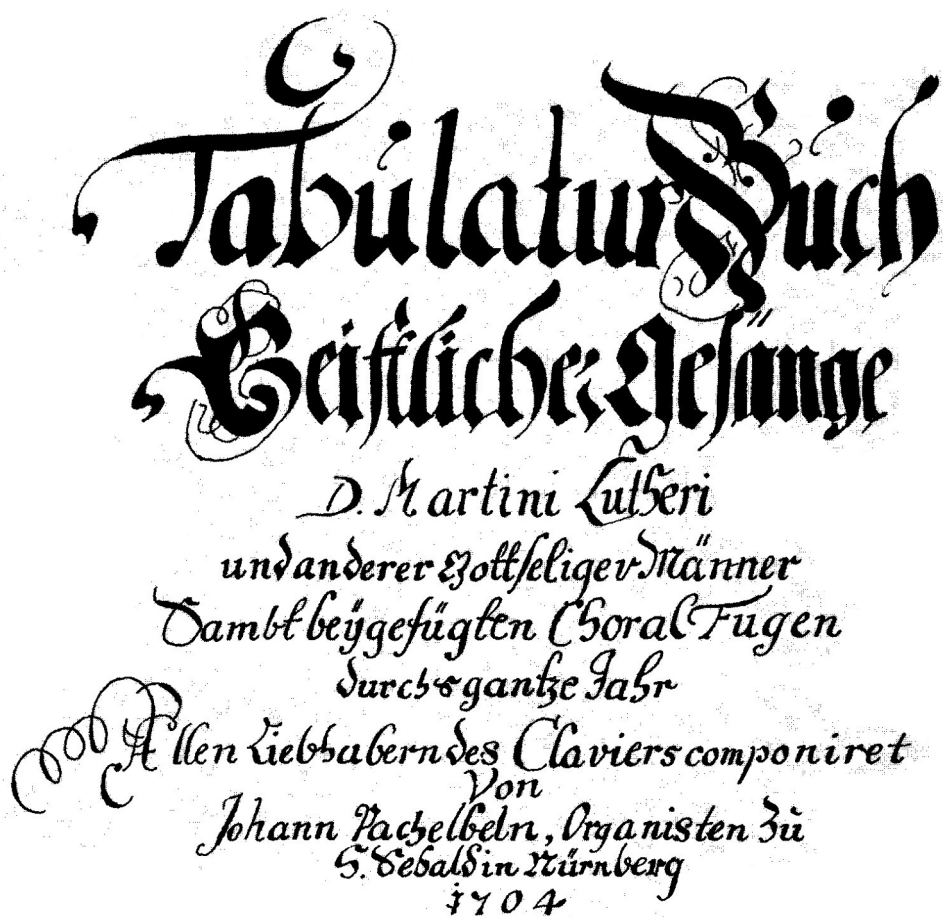 Tabulatur Buch
Geistlicher Gesänge
D. Martini Lutheri
und anderer Gottseliger Männer
Sambt beÿgefügten Choral Fugen
durchs gantze Jahr
Allen Liebhabern des Claviers componiret
Von
Johann Pachelbeln, Organisten zu
S. Sebald in Nürnberg
1704